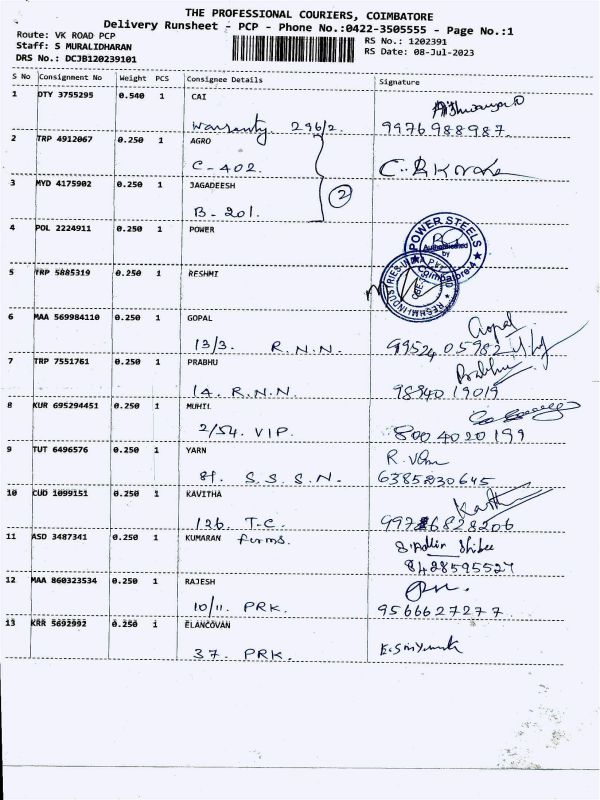 THE PROFESSIONAL COURIERS, COIMBATORE
Delivery Runsheet - PCP - Phone No.:0422-3505555 - Page No.:1
Route: VK ROAD PCP
RS No.: 1202391
Staff: S MURALIDHARAN
RS Date: 08-Jul-2023
DRS No.: DCJB120239101
S No Consignment No Weight PCS Consignee Details Signature
1 DTY 3755295 0.540 1 CAI
Warranty 296/2. 9976988987.
2 TRP 4912067 0.250 1 AGRO
C-402.
3 MYD 4175902 0.250 1 JAGADEESH
B-201. 2
4 POL 2224911 0.250 1 POWER
POWER STEELS
Authenticated
by
Coimbatore-4
5 TRP 5885319 0.250 1 RESHMI
RESHMI INDUSTRIES
6 MAA 569984110 0.250 1 GOPAL Gopal
13/3. R.N.N. 99524 05982
7 TRP 7551761 0.250 1 PRABHU Prabhu
14. R.N.N. 98940 19019
8 KUR 695294451 0.250 1 MUHIL
2/54. VIP. 8004020199
9 TUT 6496576 0.250 1 YARN
81. S.S.S.N. 6385230645
10 CUD 1099151 0.250 1 KAVITHA
126. T.C.
11 ASD 3487341 0.250 1 KUMARAN Farms.
8428595527
12 MAA 860323534 0.250 1 RAJESH
10/11. PRK. 9566627277
13 KRR 5692992 0.250 1 ELANCOVAN
37. PRK.